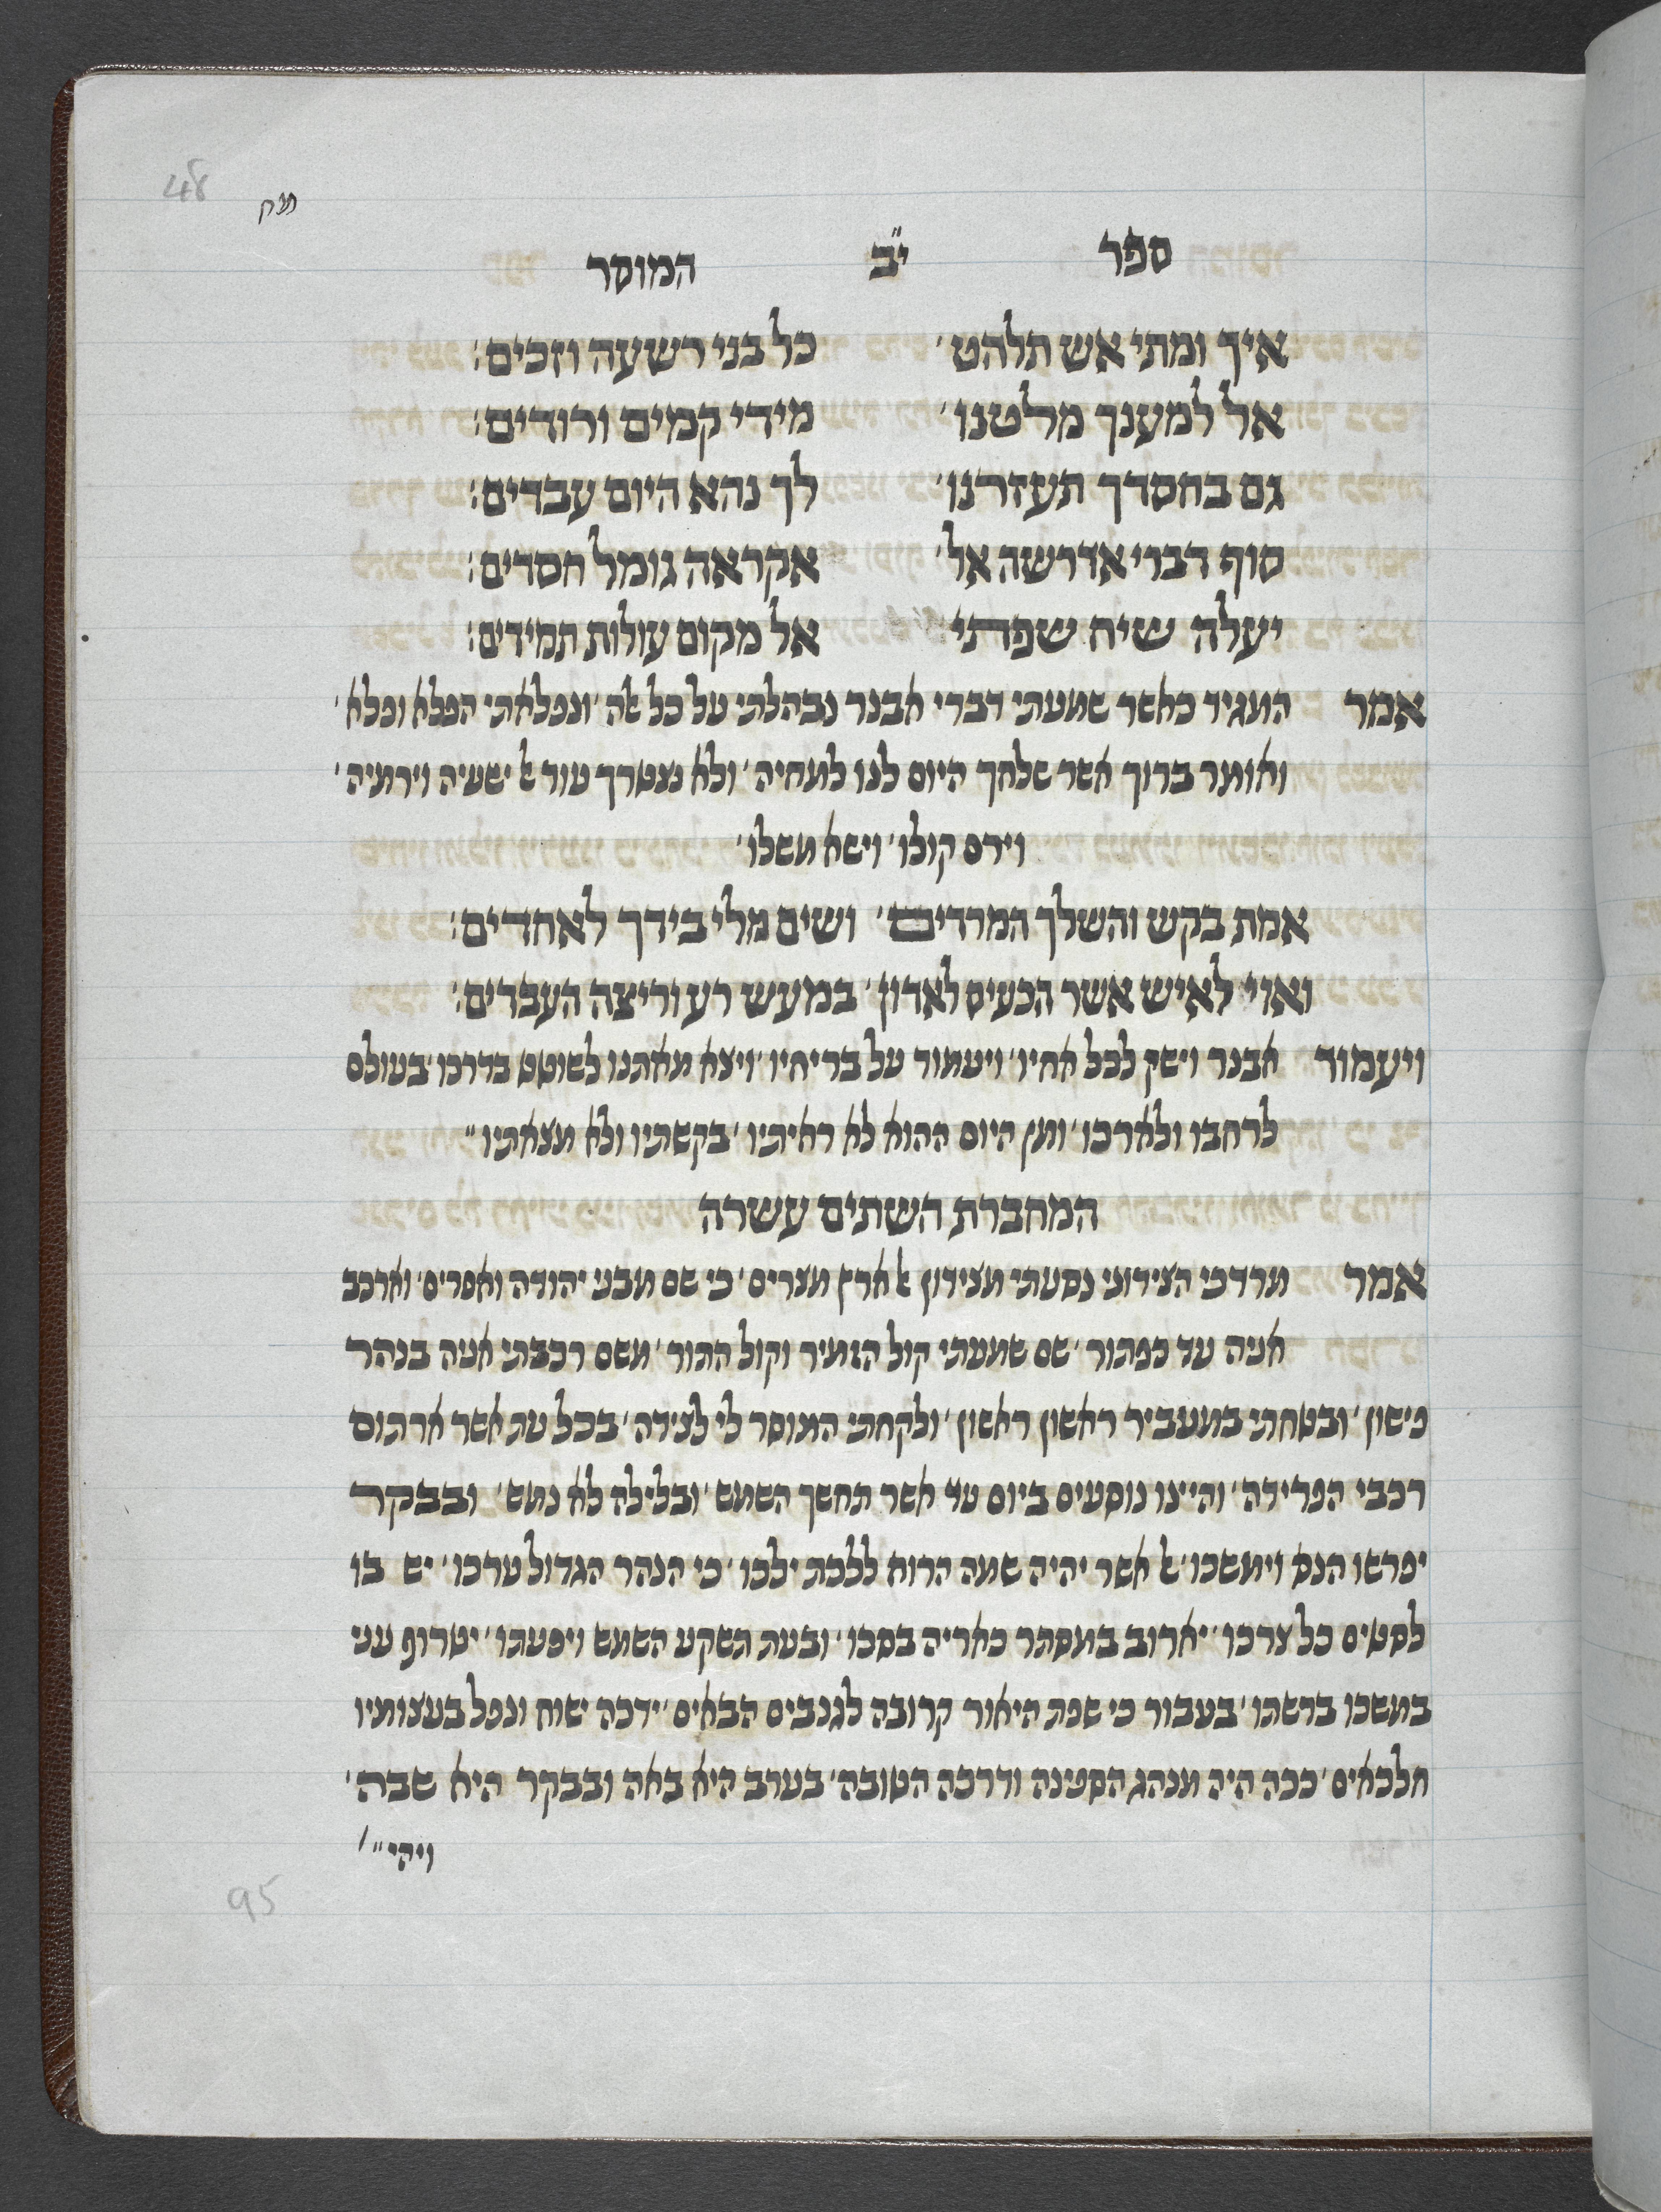 48
ספר י״ב המוסר
איך ומתי אש תלהט ׳ כל בני רשעה וזכים:
אל למענך מלטנו׳ מידי קמים ורודים:
גם בחסדך תעזרנו׳ לך נהא היום עבדים:
סוף דברי אדרשה אל׳ אקראה גומל חסדים:
יעלה שיח שפתי אל מקום עולות תמידים:
אמר המגיד כאשר שמעתי דברי אבנר נבהלתי על כל אלה ׳ ונפלאתי הפלא ופלא ׳
ואומר ברוך אשר שלחך היום לנו למחיה ׳ ולא נצטרך עוד אל ישעיה וירמיה ׳
וירם קולו ׳ וישא משלו ׳
אמת בקש והשלך המרדים׳ ושים מלי בידך לאחדים:
ואוי לאיש אשר הכעים לאדון׳ במעש רע וריצה העבדים:
ויעמוד אבנר וישק לכל אחיו׳ ויעמוד על בריחיו ׳ ויצא מאתנו לשוטט בדרכו ׳ בעולם
לרחבו ולארכו׳ ומן היום ההוא לא ראיתיו ׳ בקשתיו ולא מצאתיו ״
המחברת השתים עשרה
אמר מרדכי הצידוני נסעתי מצידון אל ארץ מצרים׳ כי שם מבני יהודה ואפרים׳ וארכב
אניה עד כפתור ׳ שם שמעתי קול הזמיר וקול התור ׳ משם רכבתי אניה בנהר
פישון׳ ובטחתי במעביר ראשון ראשון׳ ולקחתי המוסר לי לצידה ׳ בכל עת אשר ארתום
רכבי הפרידה׳ והיינו נוסעים ביום עד אשר תחשך השמש ׳ ובלילה לא נמש ׳ ובבקר
יפרשו הנס וימשכו ׳ אל אשר יהיה שמה הרוח ללכת ילכו ׳ כי הנהר הגדול ערכו ׳ יש בו
לסטים כל צרכו ׳ יארוב במסתר כאריה בסכו ׳ ובעת תשקע השמש ויפעתו ׳ יטרוף עני
במשכו ברשתו ׳ בעבור כי שפת היאור קרובה לגנבים הבאים ׳ ידכה ישוח ונפל בעצומיו
חלכאים ׳ ככה היה מנהג הספינה ודרכה הטובה׳ בערב היא באה ובבקר היא שבה ׳
ויהי ״׳
95